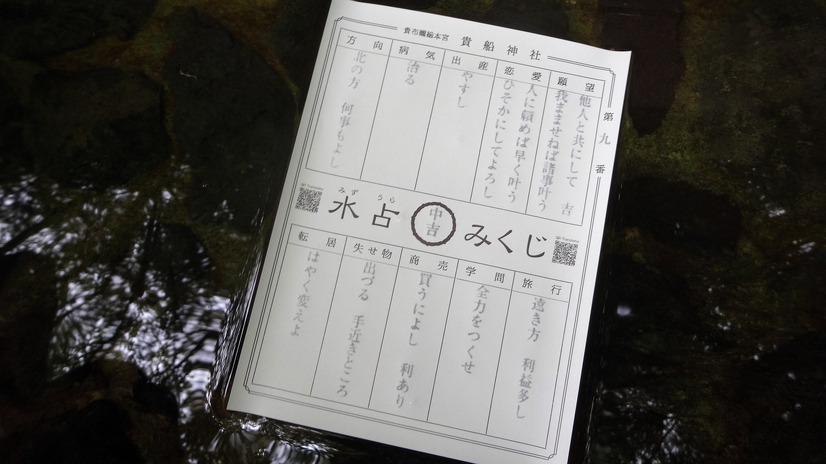 貴布禰総本宮 貴船神社
第九番
願望
他人と共にして 吉
我ままませねば諸事叶う
恋愛
人に頼めば早く叶う
ひそかにしてよろし
出産
やすし
病気
治る
方向
北の方 何事もよし
みずうら
水占
中吉
みくじ
旅行
遠き方 利益多し
学問
全力をつくせ
商売
買うによし 利あり
失せ物
出づる 手近きところ
転居
はやく変えよ